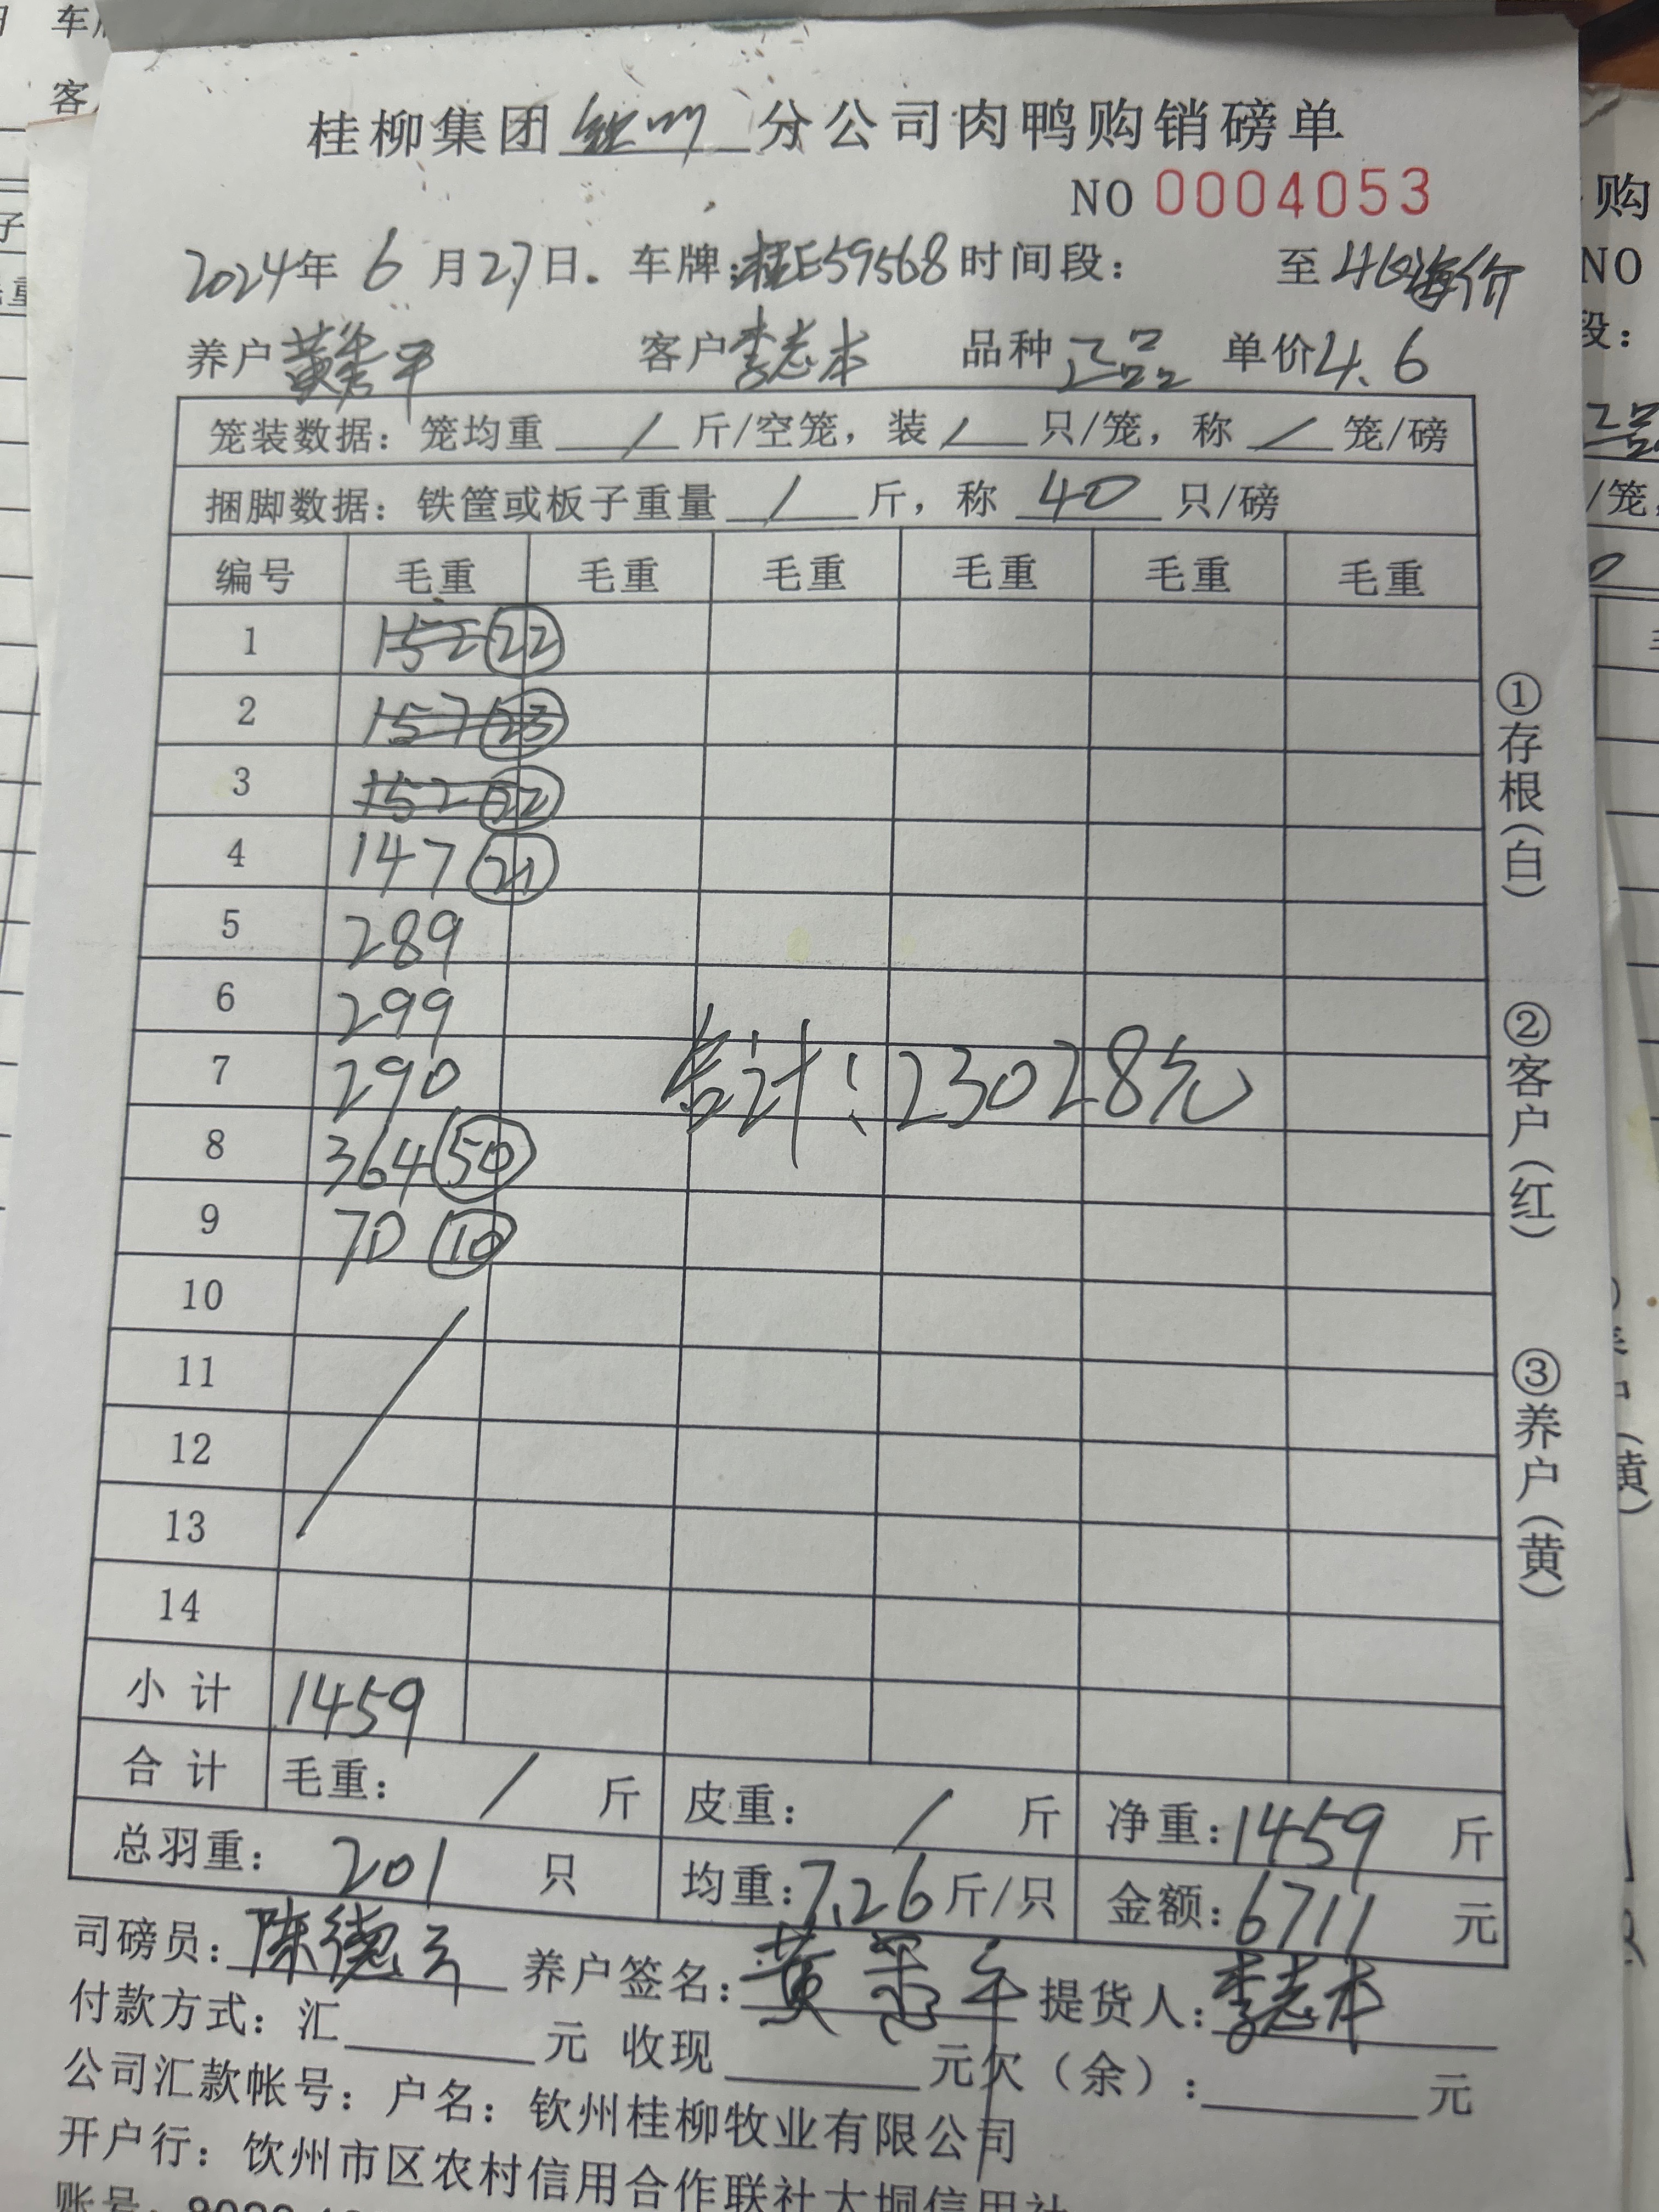 桂柳集团钦州分公司肉鸭购销磅单
NO 0004053
2024年 6 月27日. 车牌:桂E59568 时间段: 至 北海价
养户 客户 李志本 品种 正品 单价 4.6
笼装数据: 笼均重 / 斤/空笼, 装 / 只/笼, 称 / 笼/磅
捆脚数据: 铁筐或板子重量 / 斤, 称 40 只/磅
编号 毛重 毛重 毛重 毛重 毛重 毛重
1 152 22
2 157 23
3 152 22
4 147 21
5 289
6 299
7 290
合计:23028元
8 364 50
9 70 10
10
11
12
13
14
小计 1459
合计 毛重: / 斤 皮重: / 斤 净重:1459 斤
总羽重: 201 只 均重:7.26斤/只 金额:6711 元
司磅员: 陈德 养户签名: 黄 平 提货人:李志本
付款方式: 汇 元 收现 元欠(余): 元
公司汇款帐号: 户名: 钦州桂柳牧业有限公司
开户行: 钦州市区农村信用合作联社大垌信用社
账号:
①存根(白)
②客户(红)
③养户(黄)
车牌
客户
购
NO
段: